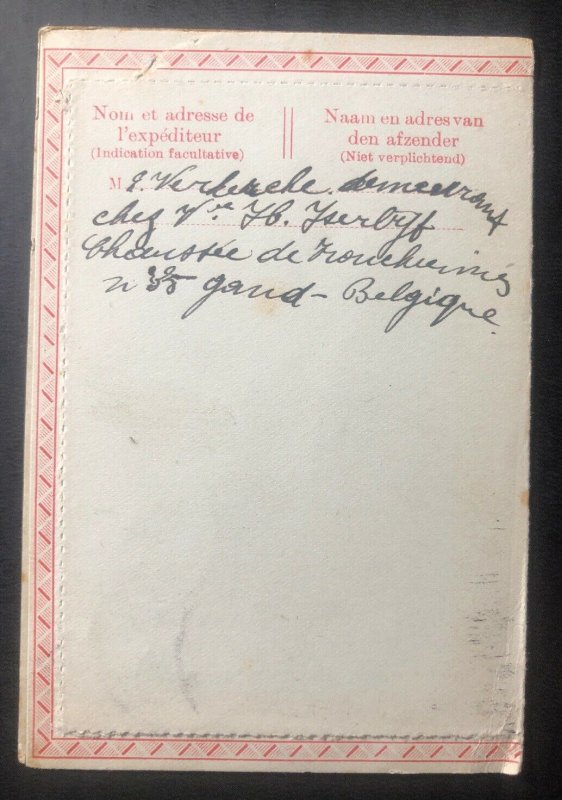 Nom et adresse de
l'expéditeur
(Indication facultative)
Naam en adres van
den afzender
(Niet verplichtend)
M. demeurant
chez Vve
Chaussée de
n gand - Belgique.